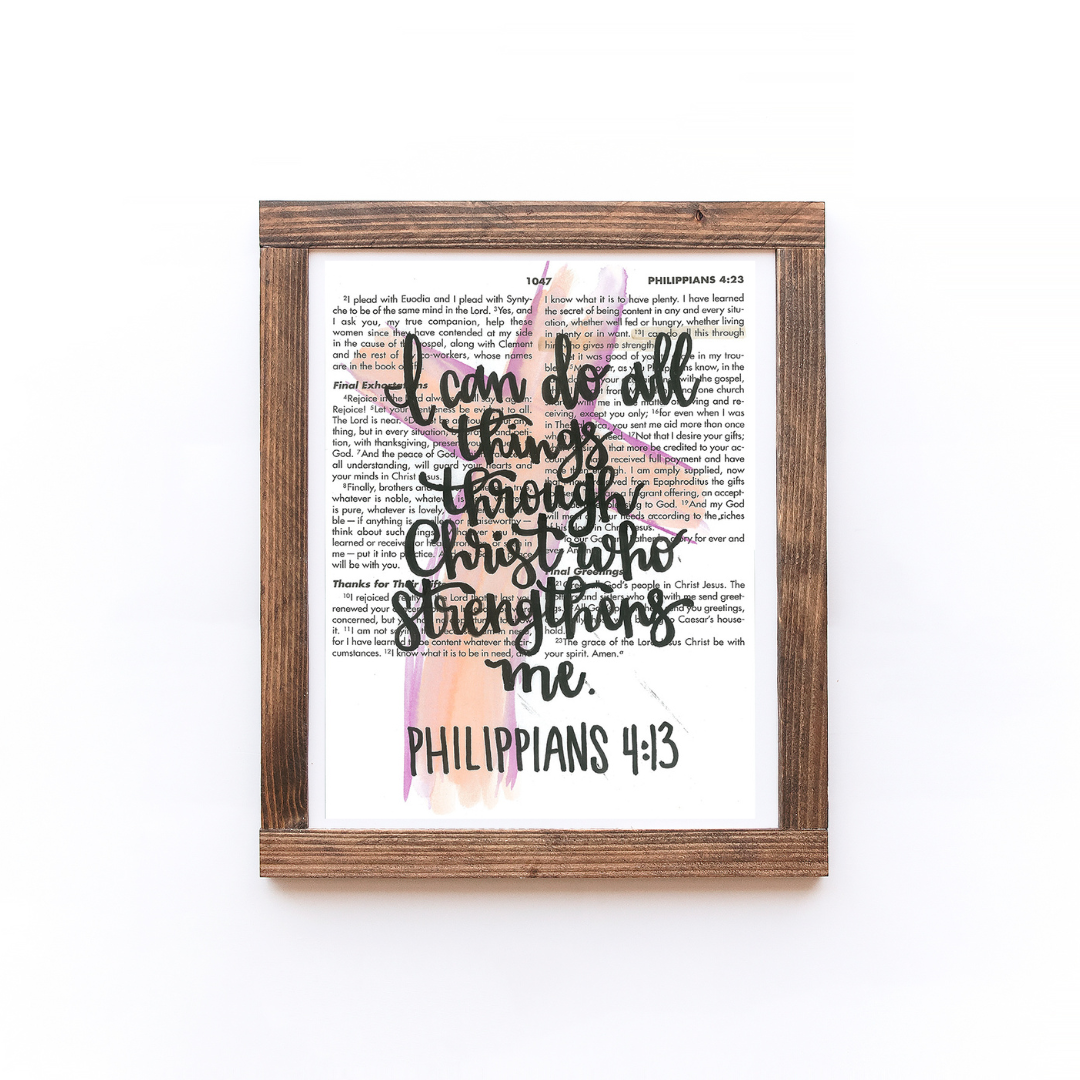 1047
PHILIPPIANS 4:23
I can do all
things
through
Christ who
strengthens
me.
PHILIPPIANS 4:13
²I plead with Euodia and I plead with Synty-
che to be of the same mind in the Lord. ³Yes, and
I ask you, my true companion, help these
women since they have contended at my side
in the cause of gospel, along with Clement
and the rest of co-workers, whose names
are in the book of
Final Exhortations
⁴Rejoice in
Rejoice! ⁵Let your gentleness be evident to all.
The Lord is near.
thing, but in every situation, by
tion, with thanksgiving, present
God. ⁷And the peace of God,
all understanding, will guard your hearts and
your minds in Christ Jesus.
⁸Finally, brothers and
whatever is noble, whatever is
is pure, whatever is lovely,
ble — if anything is excellent or praiseworthy —
think about such things.
learned or received or heard from
me — put it into practice. And the
will be with you.
Thanks for Their Gifts
¹⁰I rejoiced greatly in the Lord that at last you
renewed your
concerned, but you had no opportunity
it. ¹¹I am not in need,
for I have learned to be content whatever the cir-
cumstances. ¹²I know what it is to be in need, and
I know what it is to have plenty. I have learned
the secret of being content in any and every situ-
ation, whether well fed or hungry, whether living
in plenty or in want. ¹³I can do all this through
him who gives me strength.
it was good of you in my trou-
as you Philippians know, in the
with the gospel,
from one church
with me in the matter of giving and re-
ceiving, except you only; ¹⁶for even when I was
in you sent me aid more than once
Not that I desire your gifts;
that more be credited to your ac-
received full payment and have
more than enough. I am amply supplied, now
received from Epaphroditus the gifts
are a fragrant offering, an accept-
pleasing to God. ¹⁹And my God
will meet all your needs according to the riches
of his glory in Christ Jesus.
our God and Father be glory for ever and
ever. Amen.
Final Greetings
²¹Greet all God's people in Christ Jesus. The
and sisters who with me send greet-
ings. All God's send you greetings,
belong to Caesar's house-
hold.
²³The grace of the Lord Jesus Christ be with
your spirit. Amen.ᵃ